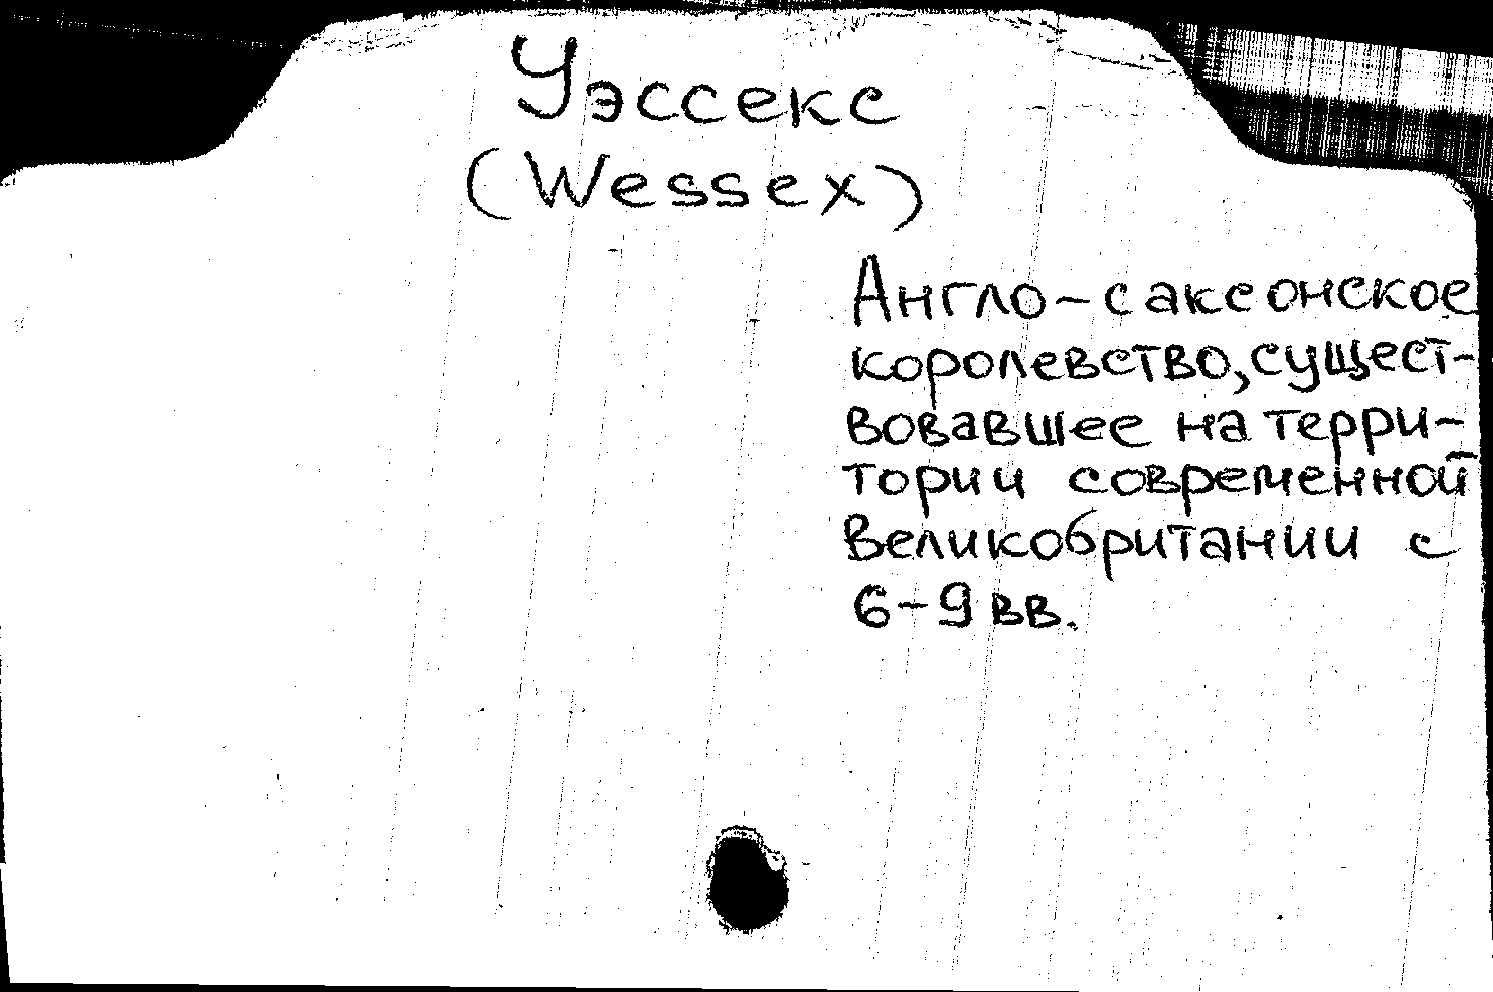 Уэссекс
(Wessex)
Англо-саксонское
королевство, сущест-
вовавшее на терри-
тории современной
Великобритании с
6-9 вв.